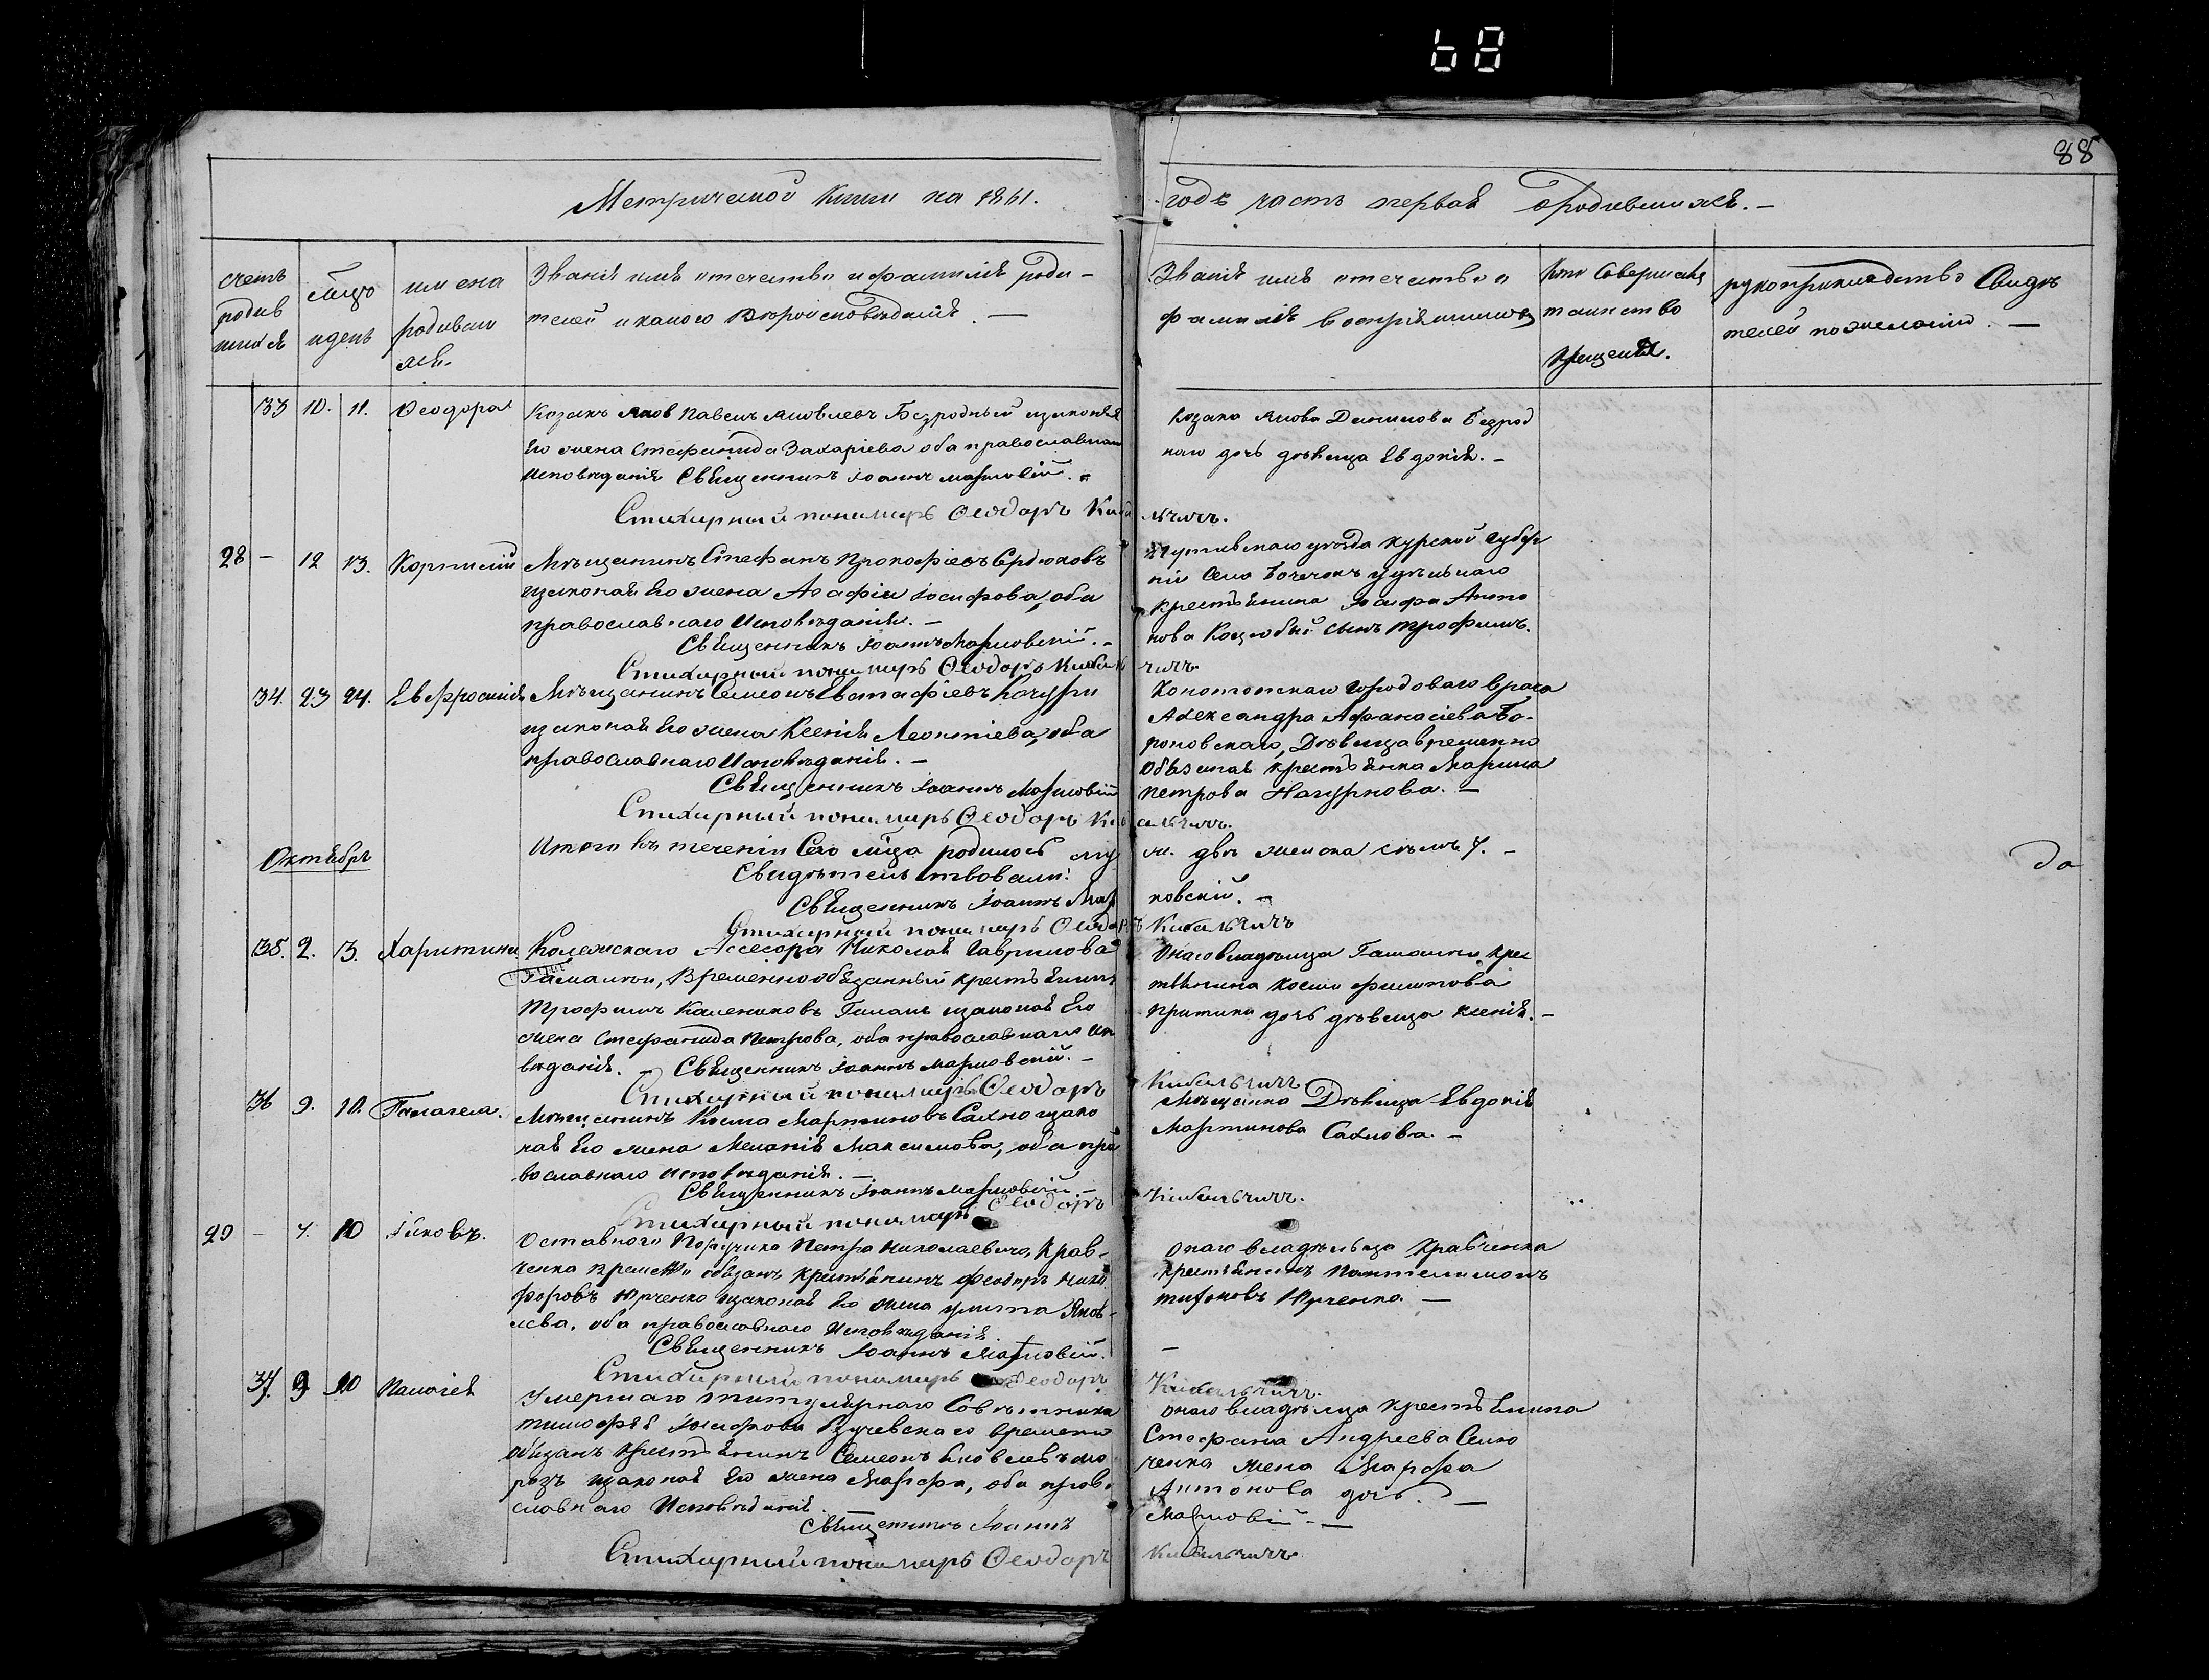 88
88
Метрической книги на 1861.
годъ часть первая о родившихся. —
счетъ родившихся
мѣсяцъ и день
имена родившихся.
Званіе имя отечество и фамилія роди-
телей и какого вѣроисповѣданія. —
Званіе имя отечество и
фамилія воспріемниковъ
кто совершалъ
таинство
крещенія.
рукоприкладство свидѣ
телей по желанію. —
33 10. 11. Ѳеодора
Козакъ Павелъ Яковлевъ Безродный и законная
его жена Стефанида Захаріева оба православнаго
исповѣданія Священникъ Іоаннъ
Стихарный пономарь Ѳеодоръ Кибальчичъ.
Козака Якова Данилова Безрод
наго дочь дѣвица Евдокія. —
28 — 12 13. Корнилій
Мѣщанинъ Стефанъ Прокофіевъ Сердюковъ
и законная его жена Агафія Іосифова, оба
православнаго исповѣданія. —
Священникъ Іоаннъ
Стихарный пономарь Ѳеодоръ Кибальчичъ
Путивльскаго уѣзда Курской губер
ніи села Бочечокъ удѣльнаго
крестьянина Іосифа Анто
нова сынъ Трофимъ.
34. 23 24. Евфросинія
Мѣщанинъ Симеонъ Евстафіевъ
и законная его жена Ксенія Леонтіева, оба
православнаго исповѣданія. —
Священникъ Іоаннъ
Стихарный пономарь Ѳеодоръ Кибальчичъ.
Конотопскаго городоваго врача
Александра Афанасіева Бо-
роновскаго, дѣвица временно
обязаная крестьянка Марина
Петрова —
Итого въ теченіи сего мѣсяца родилось муж. двѣ женска семь 7. —
Свидѣтельствовали:
Священникъ Іоаннъ
Стихарный пономарь Ѳеодоръ Кибальчичъ
Октябрь
35. 2. 3. Харитина
Колежскаго Ассесора Николая Гаврилова
Гамалѣи, временнообязанный крестьянинъ
Трофимъ Калениковъ и законная его
жена Стефанида Петрова, оба православнаго
вѣданія. Священникъ Іоаннъ
Стихарный пономарь Ѳеодоръ Кибальчичъ
Онаго владѣльца Гамалѣи крес
тьянина Космы Филипова
дочь дѣвица Ксенія. —
36 9. 10. Палагея.
Мѣщанинъ Косма Мартиновъ Сахно и зако
ная его жена Меланія Максимова, оба пра
вославнаго исповѣданія. —
Священникъ Іоаннъ —
Стихарный пономарь Ѳеодоръ Кибальчичъ.
Мѣщанка дѣвица Евдокія
Мартинова Сахнова. —
29 — 7. 10 Іяковъ.
Отставного Поручика Петра Николаевича, Крав-
ченка временно обязанъ крестьянинъ Феодоръ Ники
форовъ Юрченко и законная его жена Улита Яков-
лева, оба православнаго исповѣданія.
Священникъ Іоаннъ
Стихарный пономарь Ѳеодоръ Кибальчичъ.
онаго владѣльца Кравченка
крестьянинъ Пантелимонъ
Юрченко. —
37. 9 10 Палагея
Умершаго титулярнаго Совѣтника
Тимофея Іосифова временно
обязанъ крестьянинъ Симеонъ Яковлевъ Мо
розъ и законная его жена Марфа, оба право
славнаго исповѣданія.
Священникъ Іоаннъ
Стихарный пономарь Ѳеодоръ Кибальчичъ
онаго владѣльца крестьянина
Стефана Андреева Семе
ченка жена Марфа
Антонова дочь. —